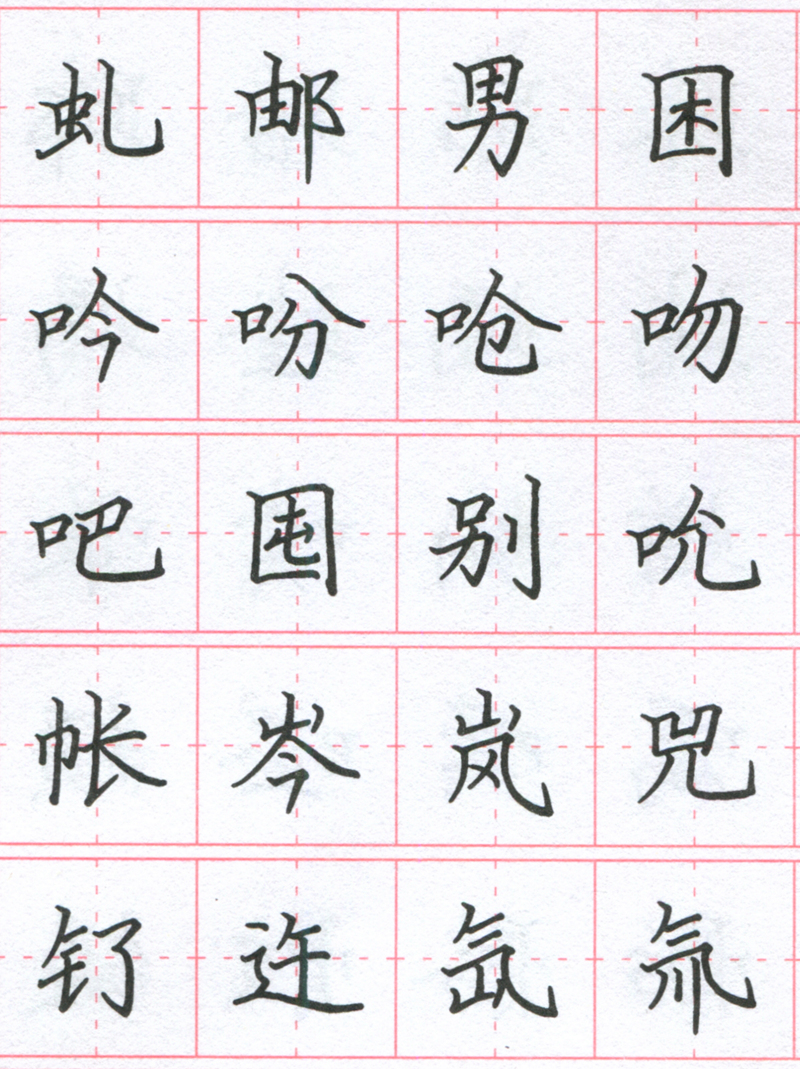 虬邮男困
吟吩呛吻
吧囤别吮
帐岑岚兕
钌迕氙氚